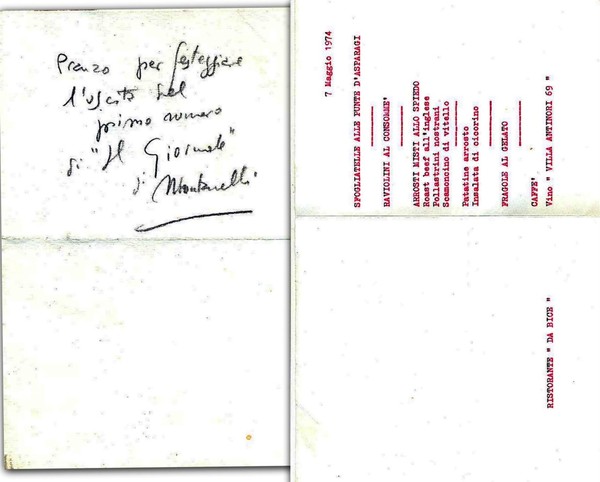 Pranzo per festeggiare
l'uscita del
primo numero
di "Il Giornale"
di Montanelli
7 Maggio 1974
SFOGLIATELLE ALLE PUNTE D'ASPARAGI
RAVIOLINI AL CONSOME'
ARROSTI MISTI ALLO SPIEDO
Roast beef all'inglese
Pollastrini nostrani
Scamoncino di vitello
Patatine arrosto
Insalata di cicorino
FRAGOLE AL GELATO
CAFFE'
Vino " VILLA ANTINORI 69 "
RISTORANTE " DA BICE "